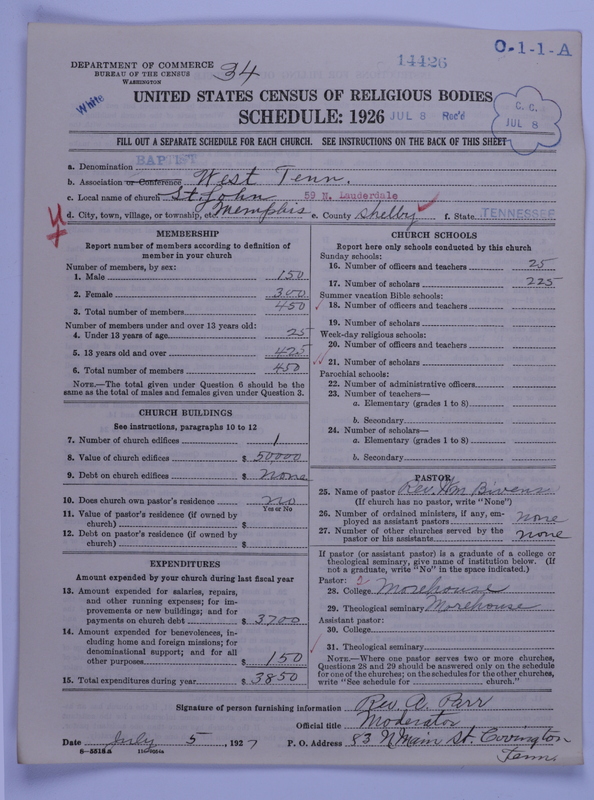 DEPARTMENT OF COMMERCE
BUREAU OF THE CENSUS
WASHINGTON
34
14426
O-1-1-A
White
UNITED STATES CENSUS OF RELIGIOUS BODIES
SCHEDULE: 1926
JUL 8 Rec'd
C. C.
JUL 8
FILL OUT A SEPARATE SCHEDULE FOR EACH CHURCH. SEE INSTRUCTIONS ON THE BACK OF THIS SHEET
a. Denomination BAPTIST
b. Association or Conference West Tenn.
c. Local name of church St. John 59 N. Lauderdale
d. City, town, village, or township, etc. Memphis e. County Shelby f. State TENNESSEE
MEMBERSHIP
Report number of members according to definition of
member in your church
Number of members, by sex:
1. Male 150
2. Female 300
3. Total number of members 450
Number of members under and over 13 years old:
4. Under 13 years of age 25
5. 13 years old and over 425
6. Total number of members 450
NOTE.—The total given under Question 6 should be the
same as the total of males and females given under Question 3.
CHURCH BUILDINGS
See instructions, paragraphs 10 to 12
7. Number of church edifices 1
8. Value of church edifices $ 50,000
9. Debt on church edifices $ none
10. Does church own pastor's residence no
Yes or No
11. Value of pastor's residence (if owned by
church) $
12. Debt on pastor's residence (if owned by
church) $
EXPENDITURES
Amount expended by your church during last fiscal year
13. Amount expended for salaries, repairs,
and other running expenses; for im-
provements or new buildings; and for
payments on church debt $ 3700
14. Amount expended for benevolences, in-
cluding home and foreign missions; for
denominational support; and for all
other purposes $ 150
15. Total expenditures during year $ 3850
CHURCH SCHOOLS
Report here only schools conducted by this church
Sunday schools:
16. Number of officers and teachers 25
17. Number of scholars 225
Summer vacation Bible schools:
18. Number of officers and teachers
19. Number of scholars
Week-day religious schools:
20. Number of officers and teachers
21. Number of scholars
Parochial schools:
22. Number of administrative officers
23. Number of teachers—
a. Elementary (grades 1 to 8)
b. Secondary
24. Number of scholars—
a. Elementary (grades 1 to 8)
b. Secondary
PASTOR
25. Name of pastor Rev. Wm Bivens
(If church has no pastor, write "None")
26. Number of ordained ministers, if any, em-
ployed as assistant pastors none
27. Number of other churches served by the
pastor or his assistants none
If pastor (or assistant pastor) is a graduate of a college or
theological seminary, give name of institution below. (If
not a graduate, write "No" in the space indicated.)
Pastor: 2
28. College Morehouse
29. Theological seminary Morehouse
Assistant pastor:
30. College
31. Theological seminary
NOTE.—Where one pastor serves two or more churches,
Questions 28 and 29 should be answered only on the schedule
for one of the churches; on the schedules for the other churches,
write "See schedule for church."
Signature of person furnishing information Rev. A. Parr
Official title Moderator
Date July 5, 1927 P. O. Address 83 N Main St. Covington
Tenn.
8—5518A